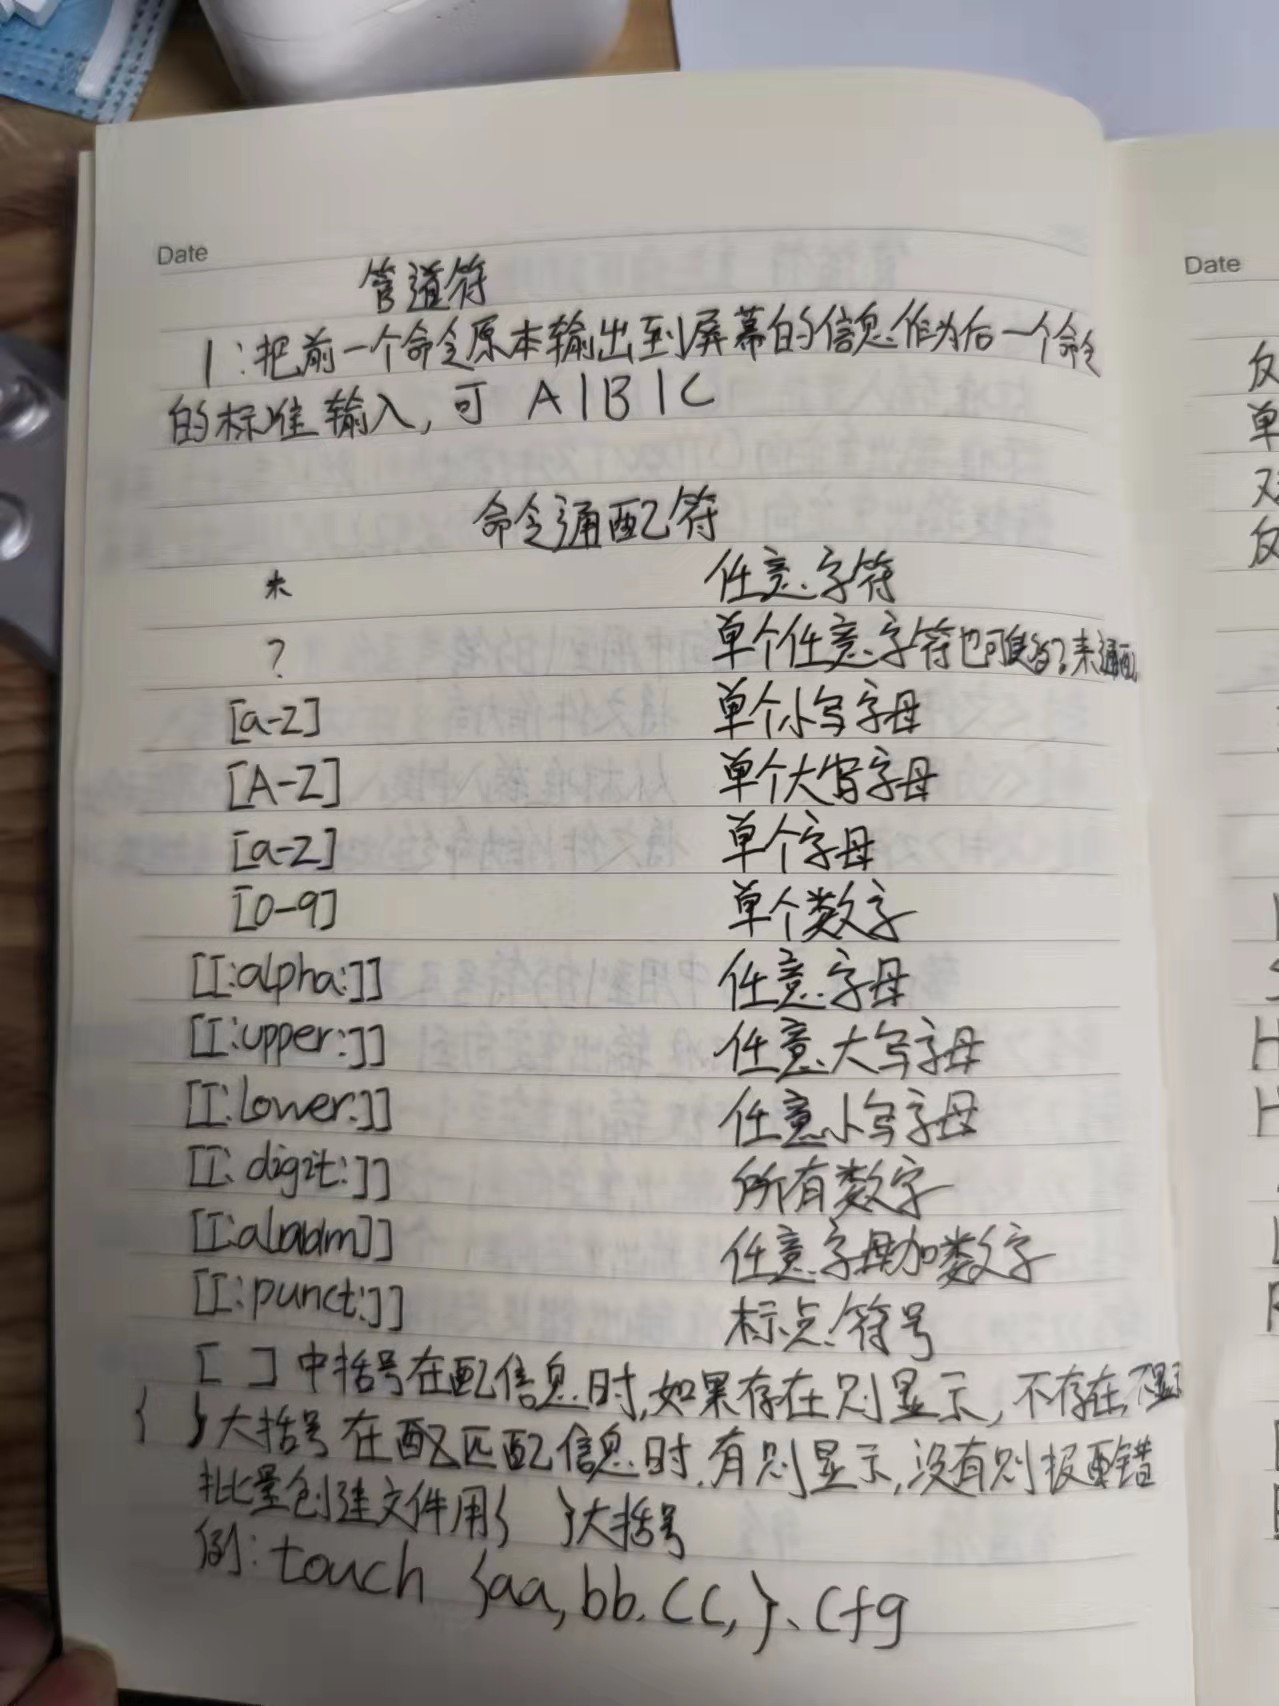 Date
管道符
|:把前一个命令原本输出到屏幕的信息作为后一个命令
的标准输入,可 A|B|C
命令通配符
* 任意字符
? 单个任意字符也可使多?来通配
[a-z] 单个小写字母
[A-Z] 单个大写字母
[a-z] 单个字母
[0-9] 单个数字
[[:alpha:]] 任意字母
[[:upper:]] 任意大写字母
[[:lower:]] 任意小写字母
[[:digit:]] 所有数字
任意字母加数字
[[:punct:]] 标点符号
[ ]中括号在配信息时,如果存在则显示,不存在,不显示
{ }大括号在配匹配信息时,有则显示,没有则报错
批量创建文件用{ }大括号
例:touch {aa,bb.cc,}.cfg
Date
反
单
双
反